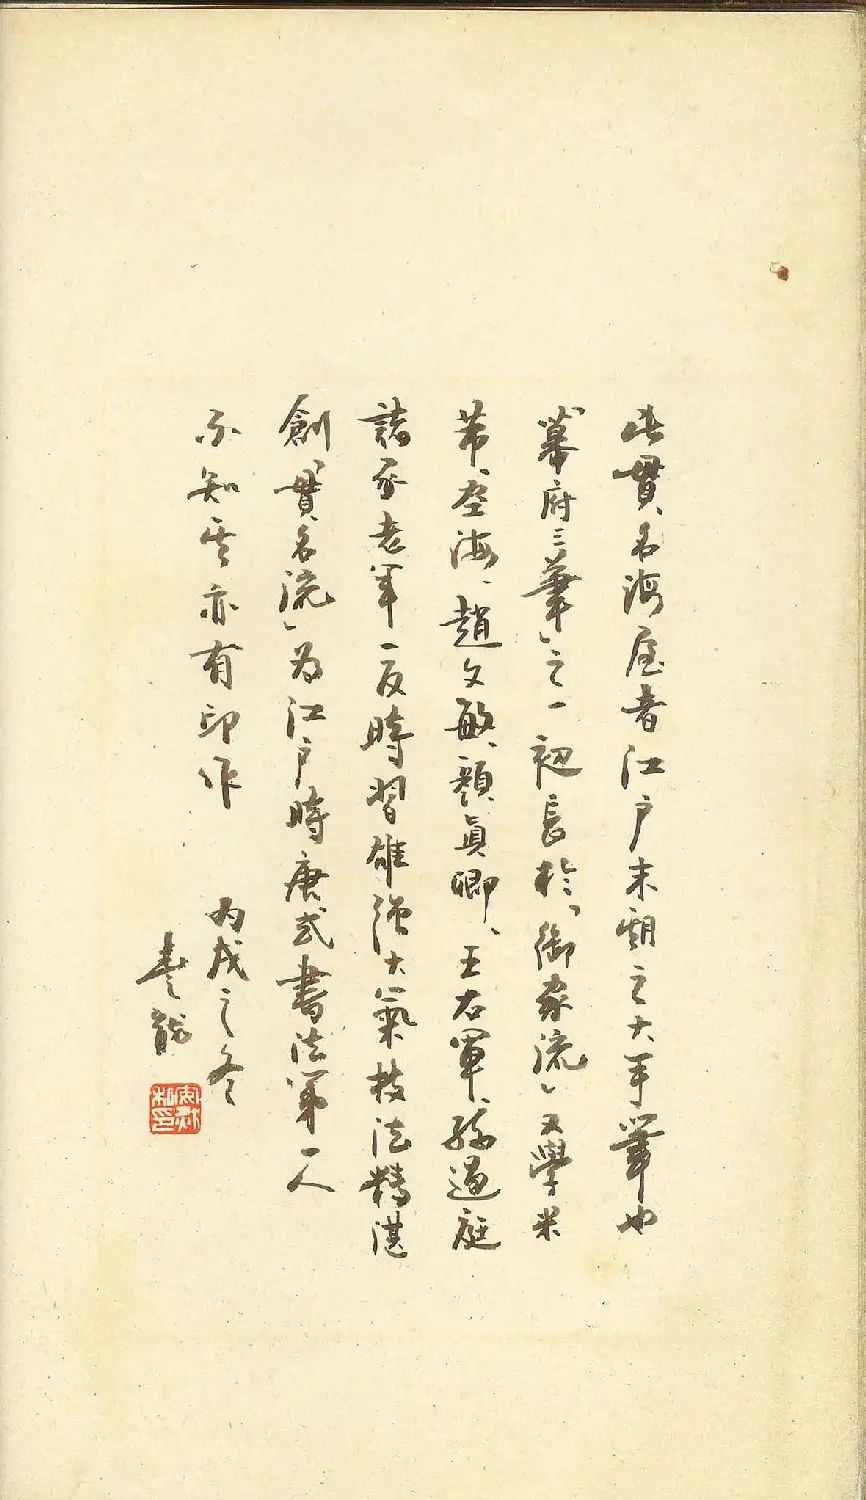 此貫名海屋者江户末期之大手筆也
「幕府三筆」之一初長於「御家流」又學米
芾、空海、趙文敏、顏眞卿、王右軍、孫過庭
諸家老年一反時習雄强大氣技法精湛
創「貫名流」為江户時唐式書法第一人
不知其亦有印作 丙戌之冬